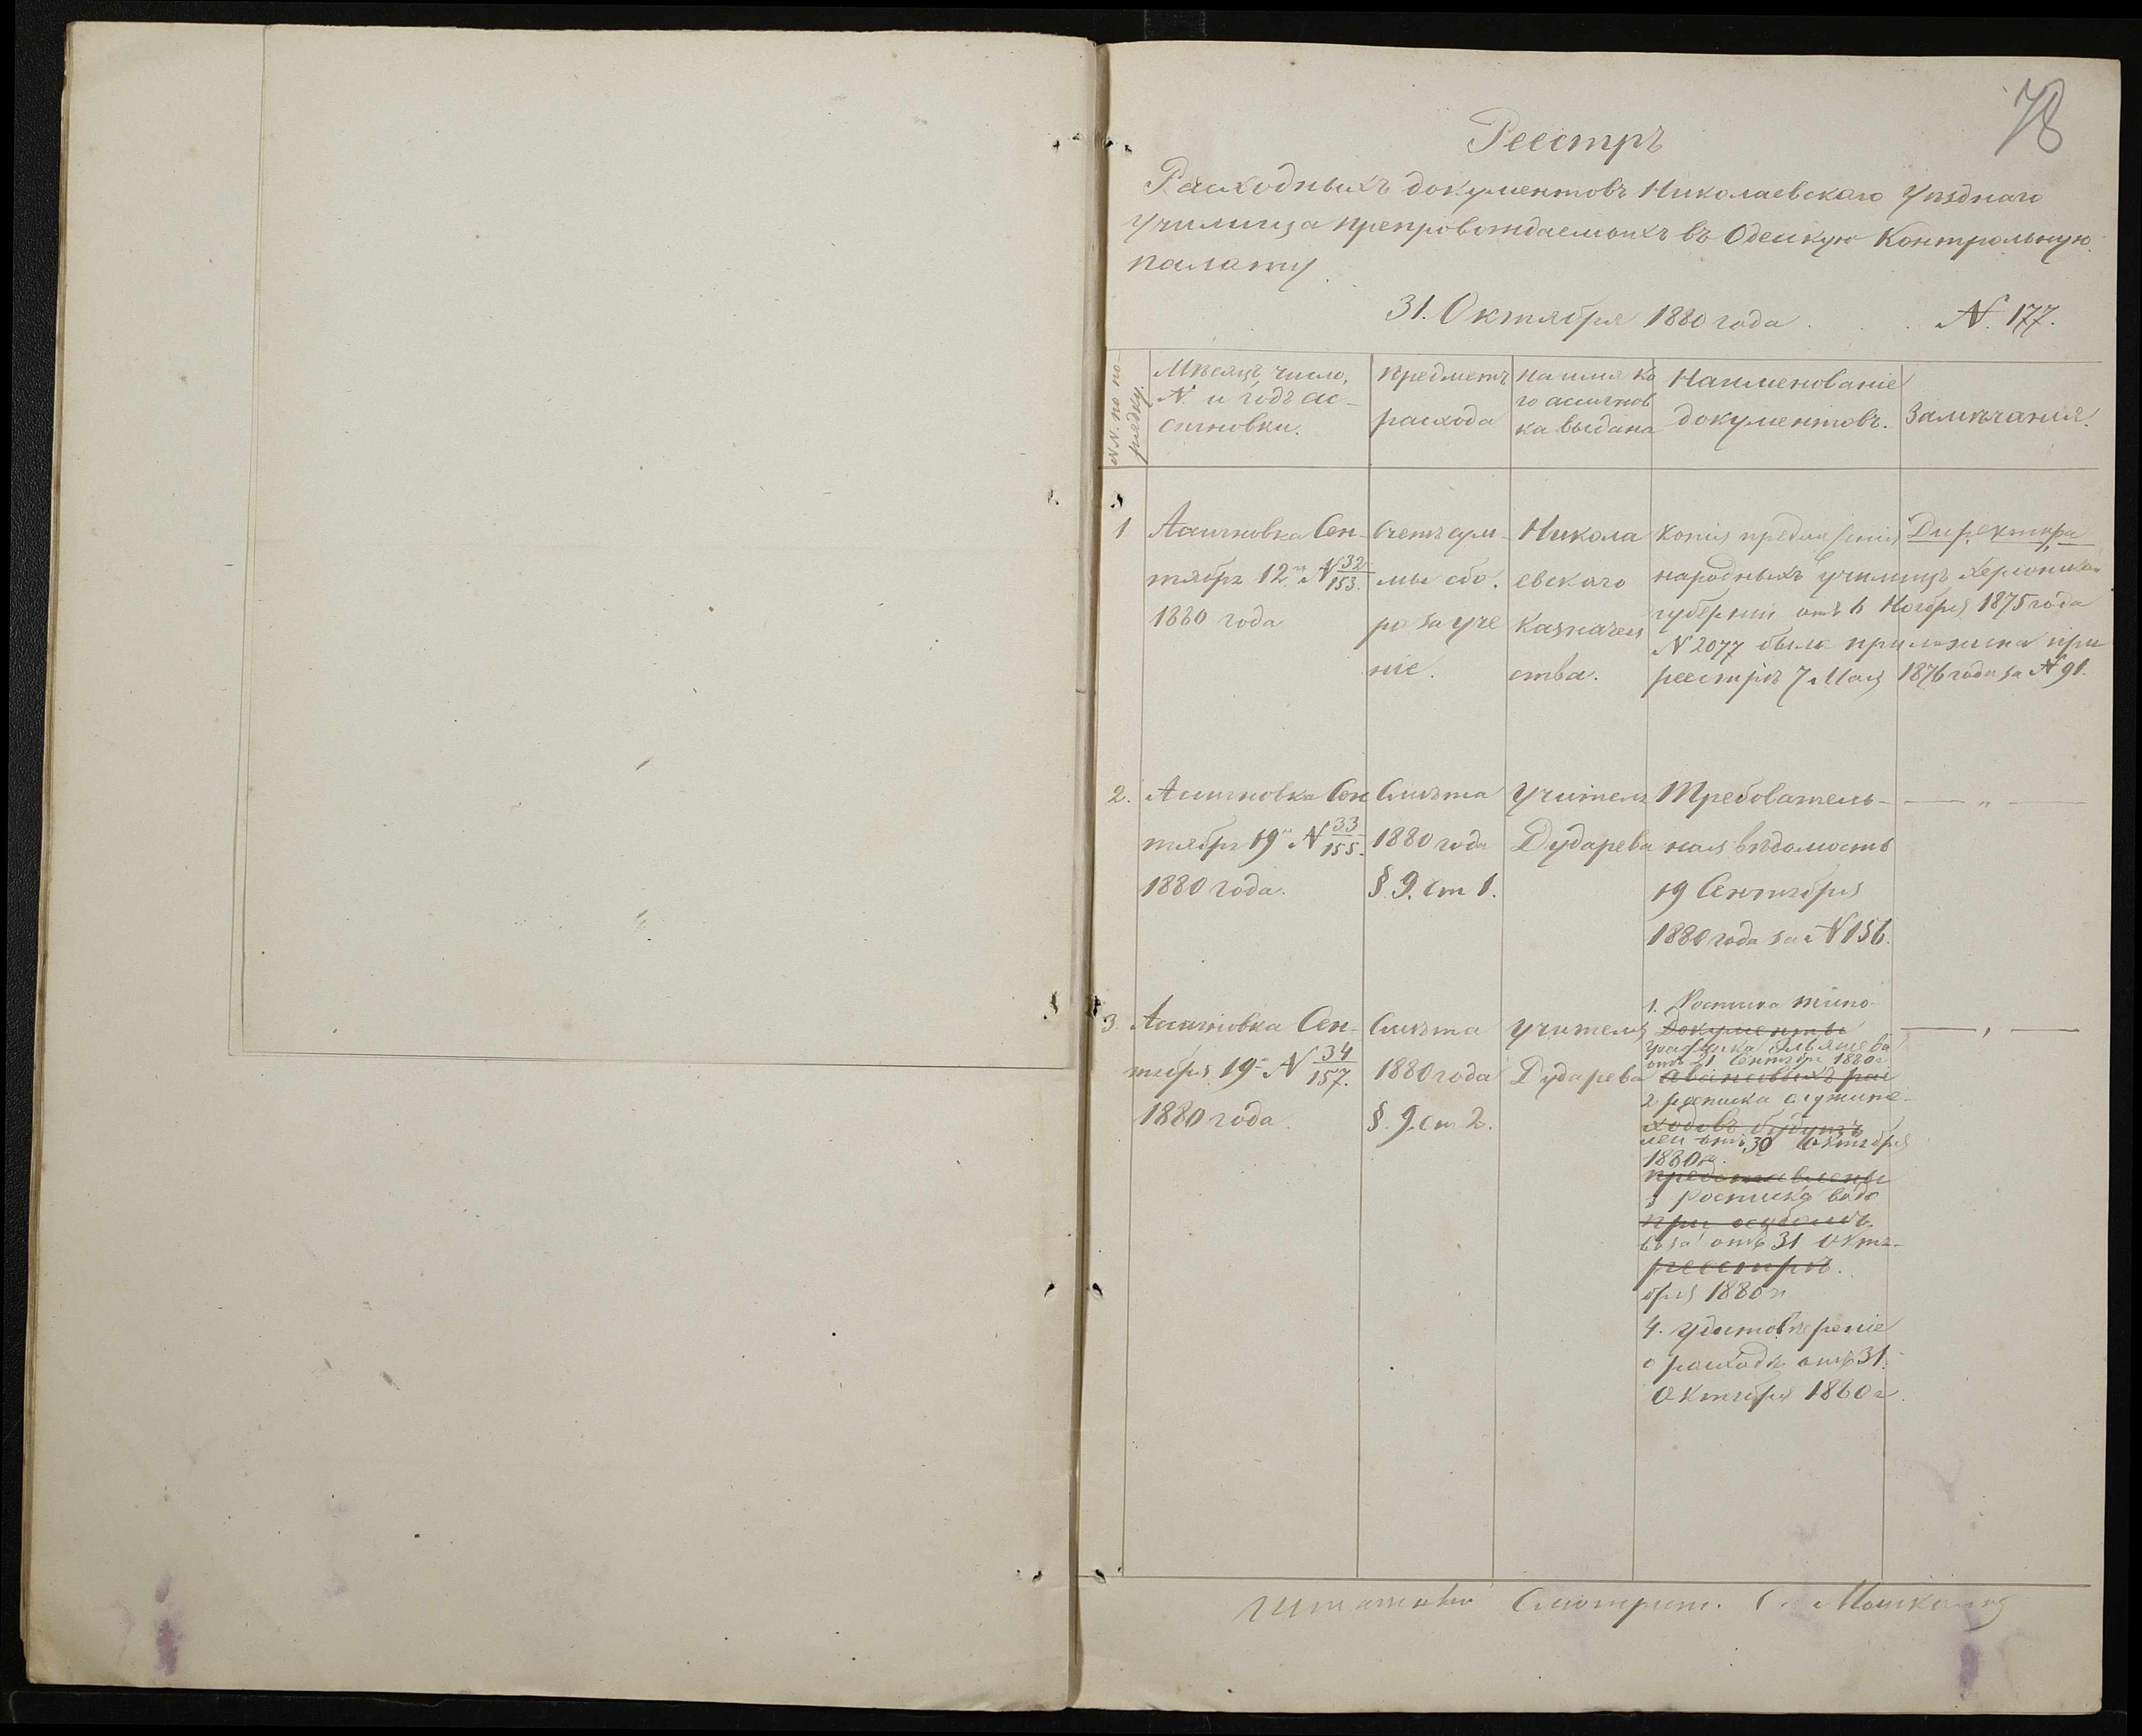 78
Реестръ
Расходныхъ документовъ Николаевскаго Уѣзднаго
Училища препровождаемыхъ въ Одескую Контрольную
палату.
31. Октября 1880 года. N. 177.
N.N. по по-
рядку.
Мѣсяцъ число,
N. и годъ ас-
сигновки.
Предметъ
расхода
На имя ко
го ассигнов
ка выдана
Наименованіе
документовъ.
Замѣчанія.
1
Асигновка Сен-
тября 12го N 32/153.
1880 года
Счетъ сум-
мы сбо.
ра за уче
ніе.
Никола
евскаго
Казначей
ства.
Копія предложенія Директора
народныхъ училищъ Херсонской
губерніи отъ 6 Ноября 1875 года
N 2077 была приложена при
реестрѣ 7 Мая 1876 года за N 91.
2.
Асигновка Сен
тября 19го N 33/155.
1880 года.
Смѣта
1880 года
§. 9. ст 1.
Учителя
Дударева
Требователь-
ная вѣдомость
19 Сентября
1880 года за N 156.
— „ —
3.
Асигновка Сен-
тября 19го N 34/157.
1880 года.
Смѣта
1880 года
§. 9. ст 2.
Учителя
Дударева
1. Росписка типо-
Документы
отъ 21 Сентября 1880 г
авансовыхъ рас
2 росписка служите-
ходовъ будутъ
лей отъ 30 Октября
1880 г.
представлены
3 Росписка водо
при особомъ
воза отъ 31 Октя-
реестрѣ.
бря 1880 г
4. удостовѣреніе
о расходѣ отъ 31
Октября 1880 г.
— „ —
Штатный Смотрит.